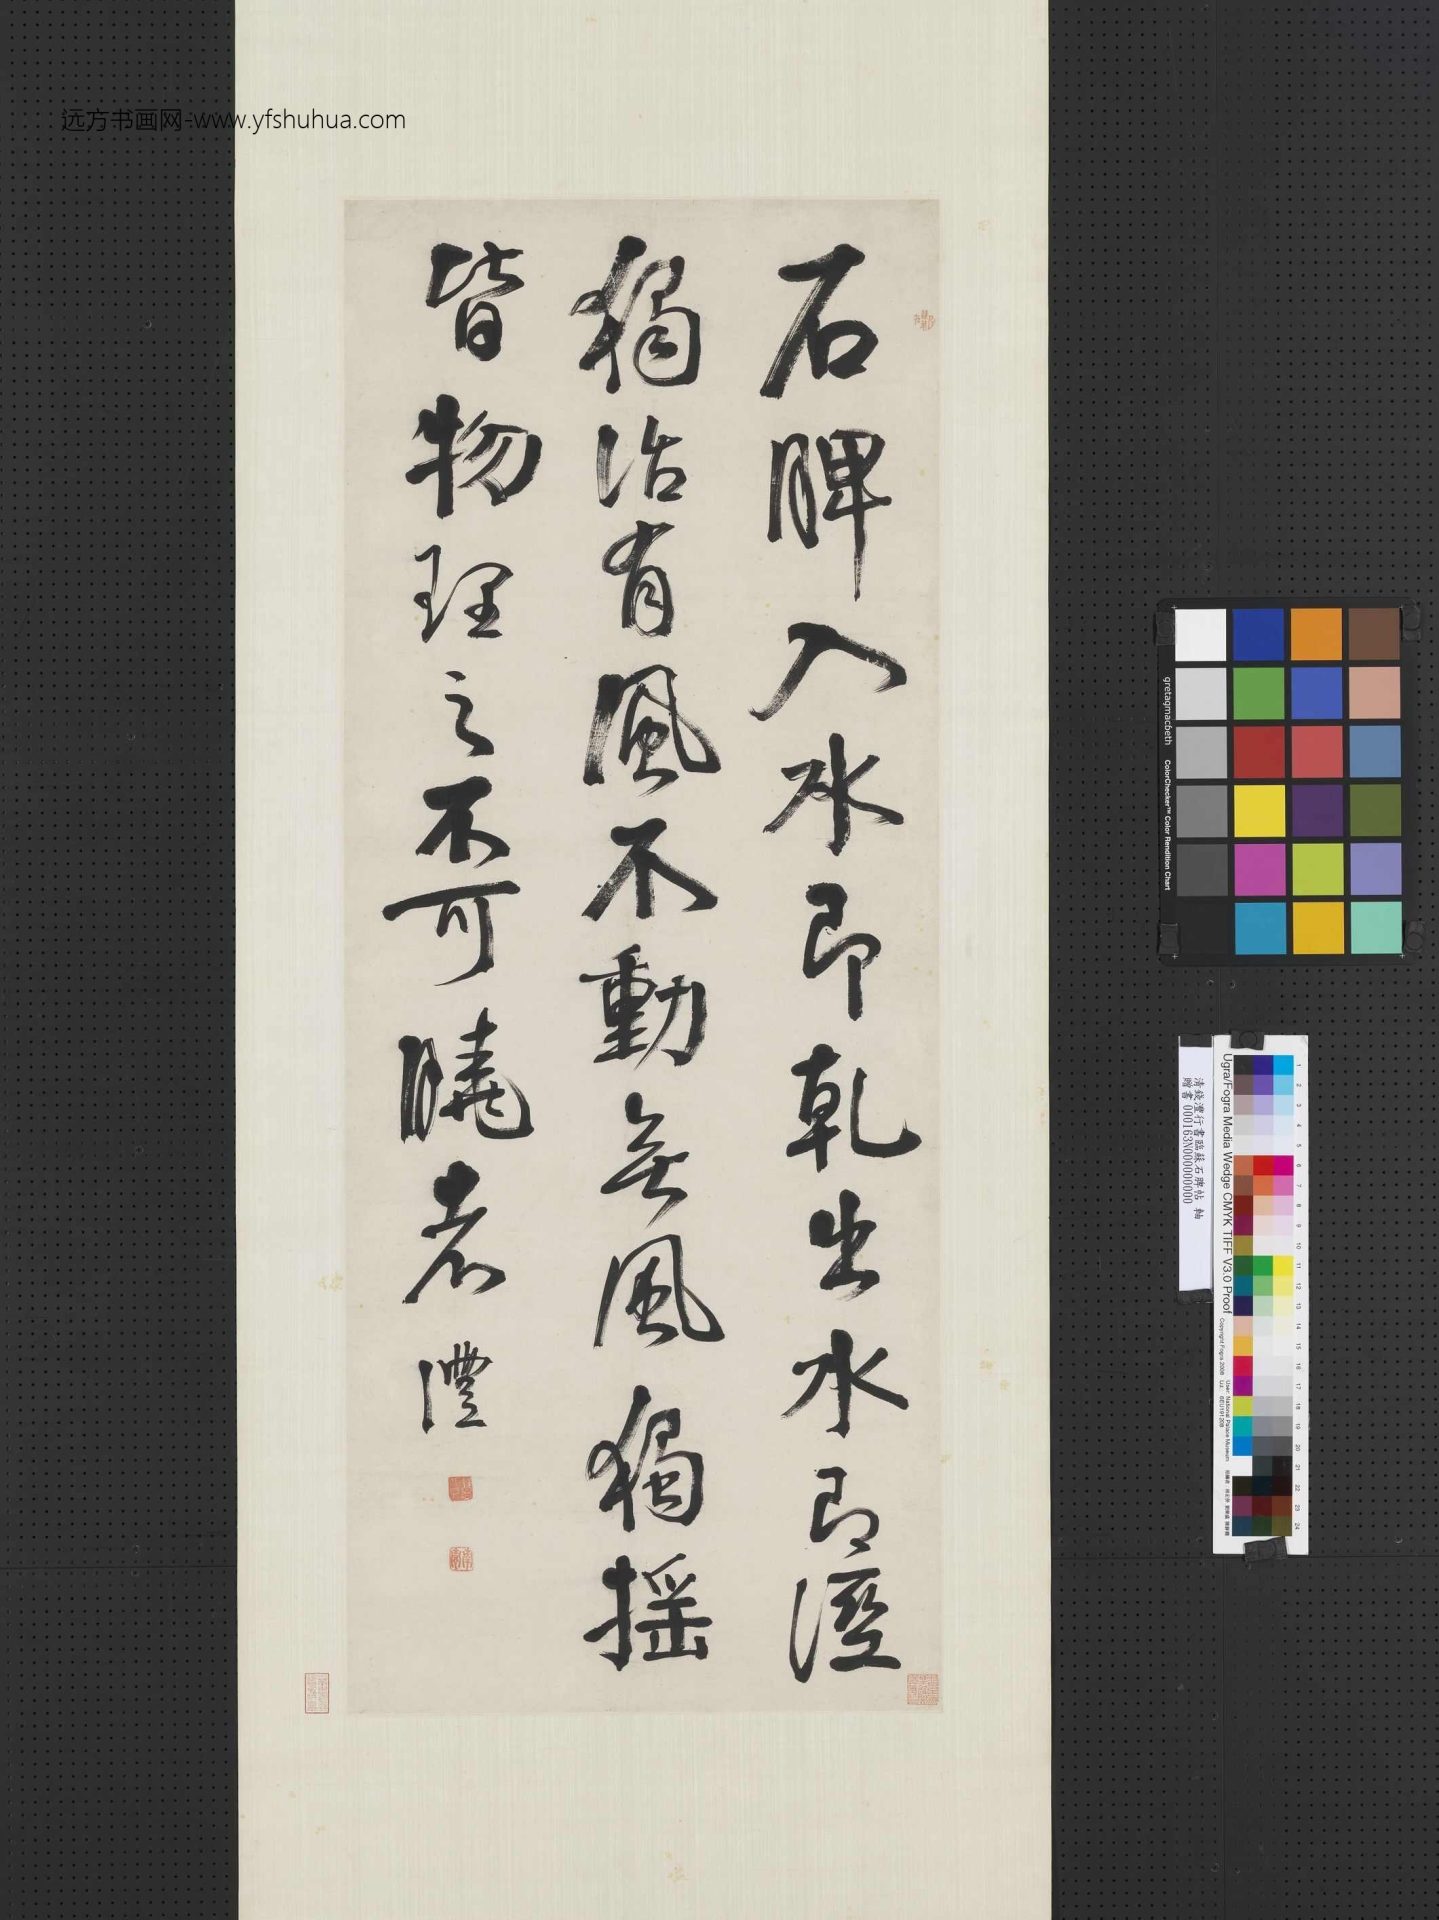 远方书画网-www.yfshuhua.com
石脾入水即乾出水即溼
獨活有風不動無風獨摇
皆物理之不可曉者 澧
gretagmacbeth
ColorChecker™ Color Rendition Chart
清錢澧行書臨蘇石脾帖 軸
贈書 000163N000000000
Ugra/Fogra Media Wedge CMYK TIFF V3.0 Proof
Copyright Fogra 2008
User: National Palace Museum
1
2
3
4
5
6
7
8
9
10
11
12
13
14
15
16
17
18
19
20
21
22
23
24